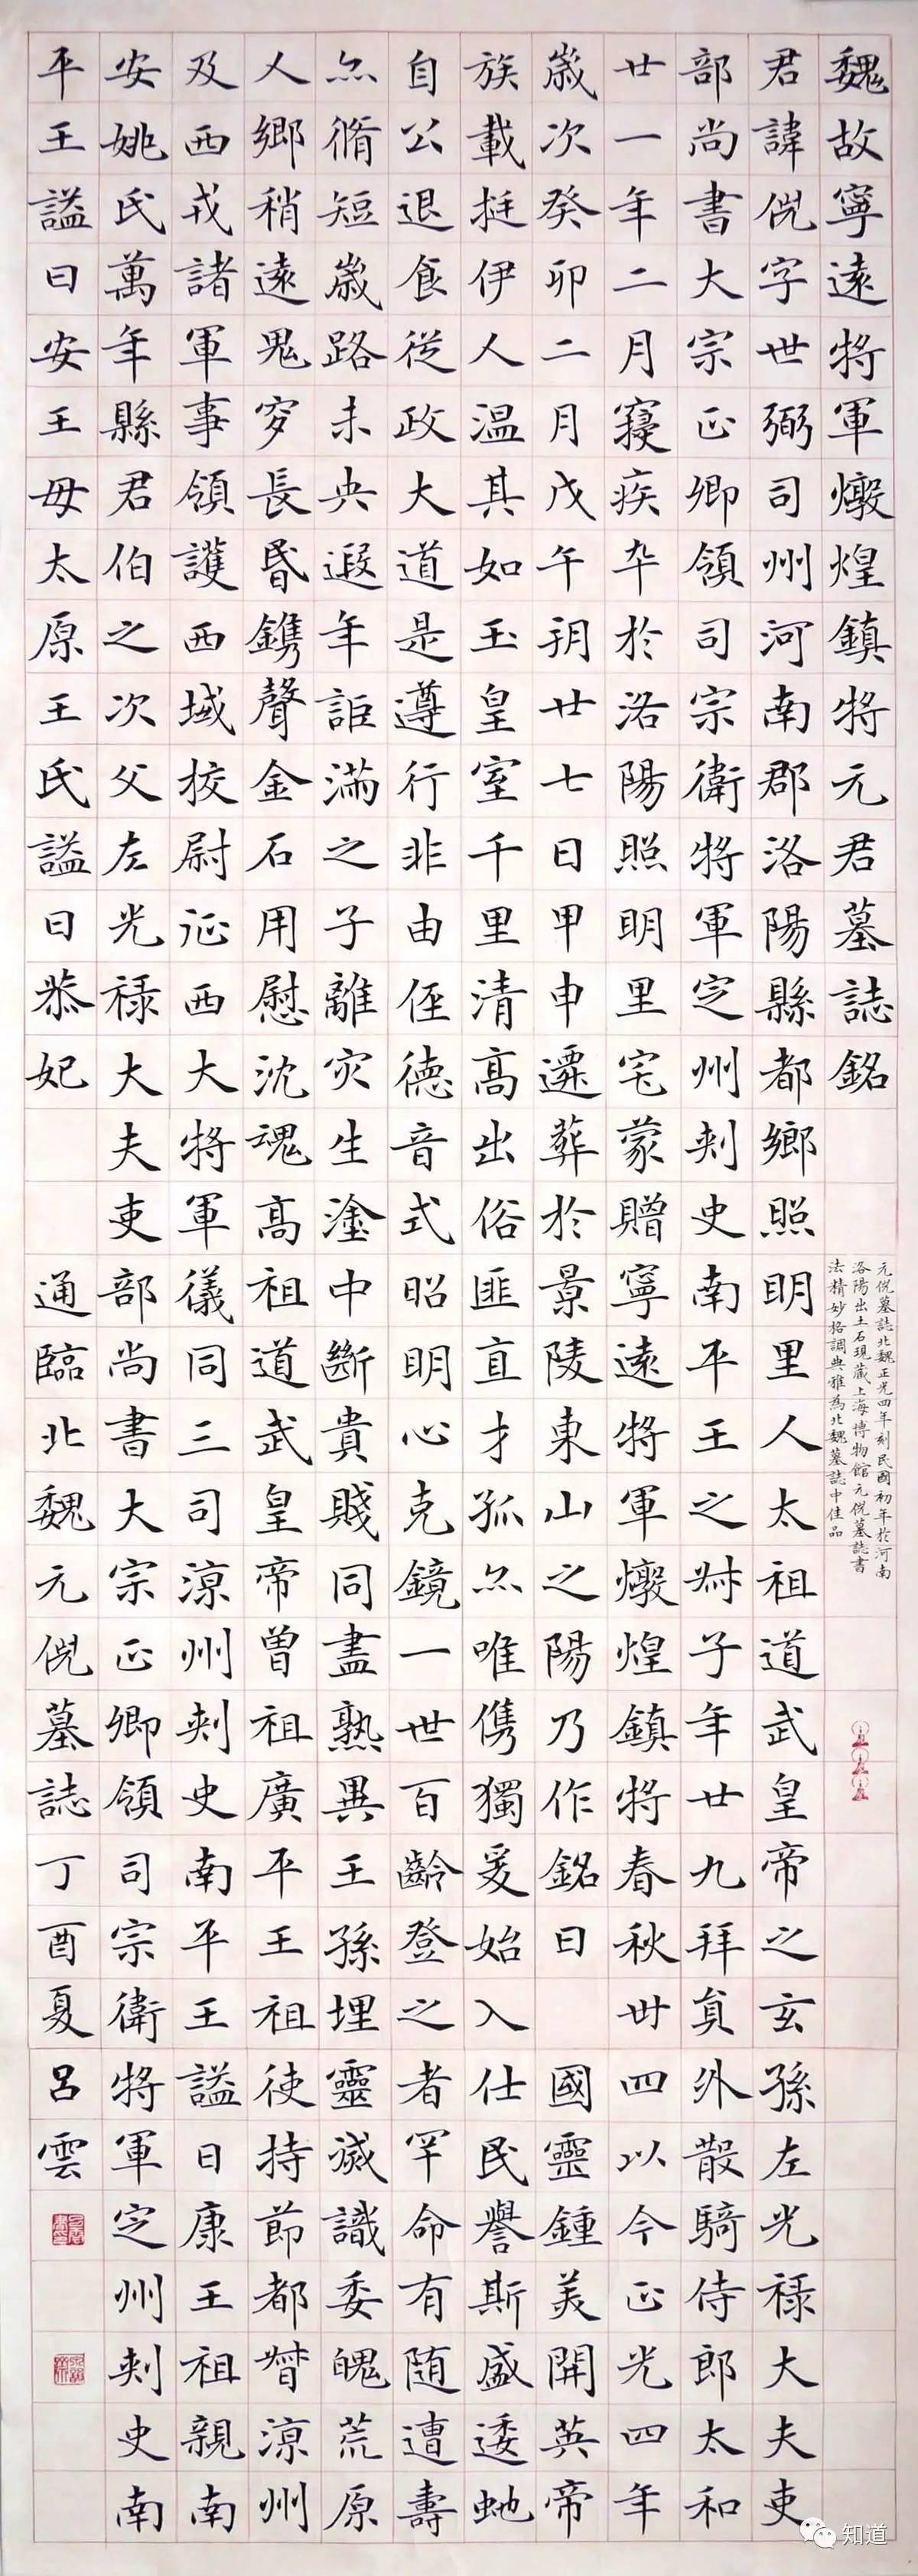 魏故寧遠將軍燉煌鎮將元君墓誌銘
元倪墓誌北魏正光四年刻民國初年於河南
洛陽出土石現藏上海博物館元倪墓誌書
法精妙格調典雅為北魏墓誌中佳品
君諱倪字世弼司州河南郡洛陽縣都鄉照明里人太祖道武皇帝之玄孫左光禄大夫吏
部尚書大宗正卿領司宗衛將軍定州刾史南平王之叔子年廿九拜員外散騎侍郎太和
廿一年二月寢疾卒於洛陽照明里宅蒙贈寧遠將軍燉煌鎮將春秋丗四以今正光四年
歲次癸卯二月戊午朔廿七日甲申遷葬於景陵東山之陽乃作銘曰 國靈鍾美開英帝
族載挺伊人温其如玉皇室千里清高出俗匪直才孤亦唯儁獨爰始入仕民譽斯盛逶虵
自公退食從政大道是遵行非由侹德音式昭明心克鏡一世百齡登之者罕命有随遭壽
亦脩短歲路未央遐年詎滿之子離灾生塗中斷貴賤同盡熟異王孫埋靈滅識委魄荒原
人鄉稍遠鬼穸長昏鐫聲金石用慰沈魂高祖道武皇帝曾祖廣平王祖使持節都督涼州
及西戎諸軍事領護西域校尉征西大將軍儀同三司涼州刾史南平王謚曰康王祖親南
安姚氏萬年縣君伯之次父左光禄大夫吏部尚書大宗正卿領司宗衛將軍定州刾史南
平王謚曰安王母太原王氏謚曰恭妃 通臨北魏元倪墓誌丁酉夏呂雲
知道